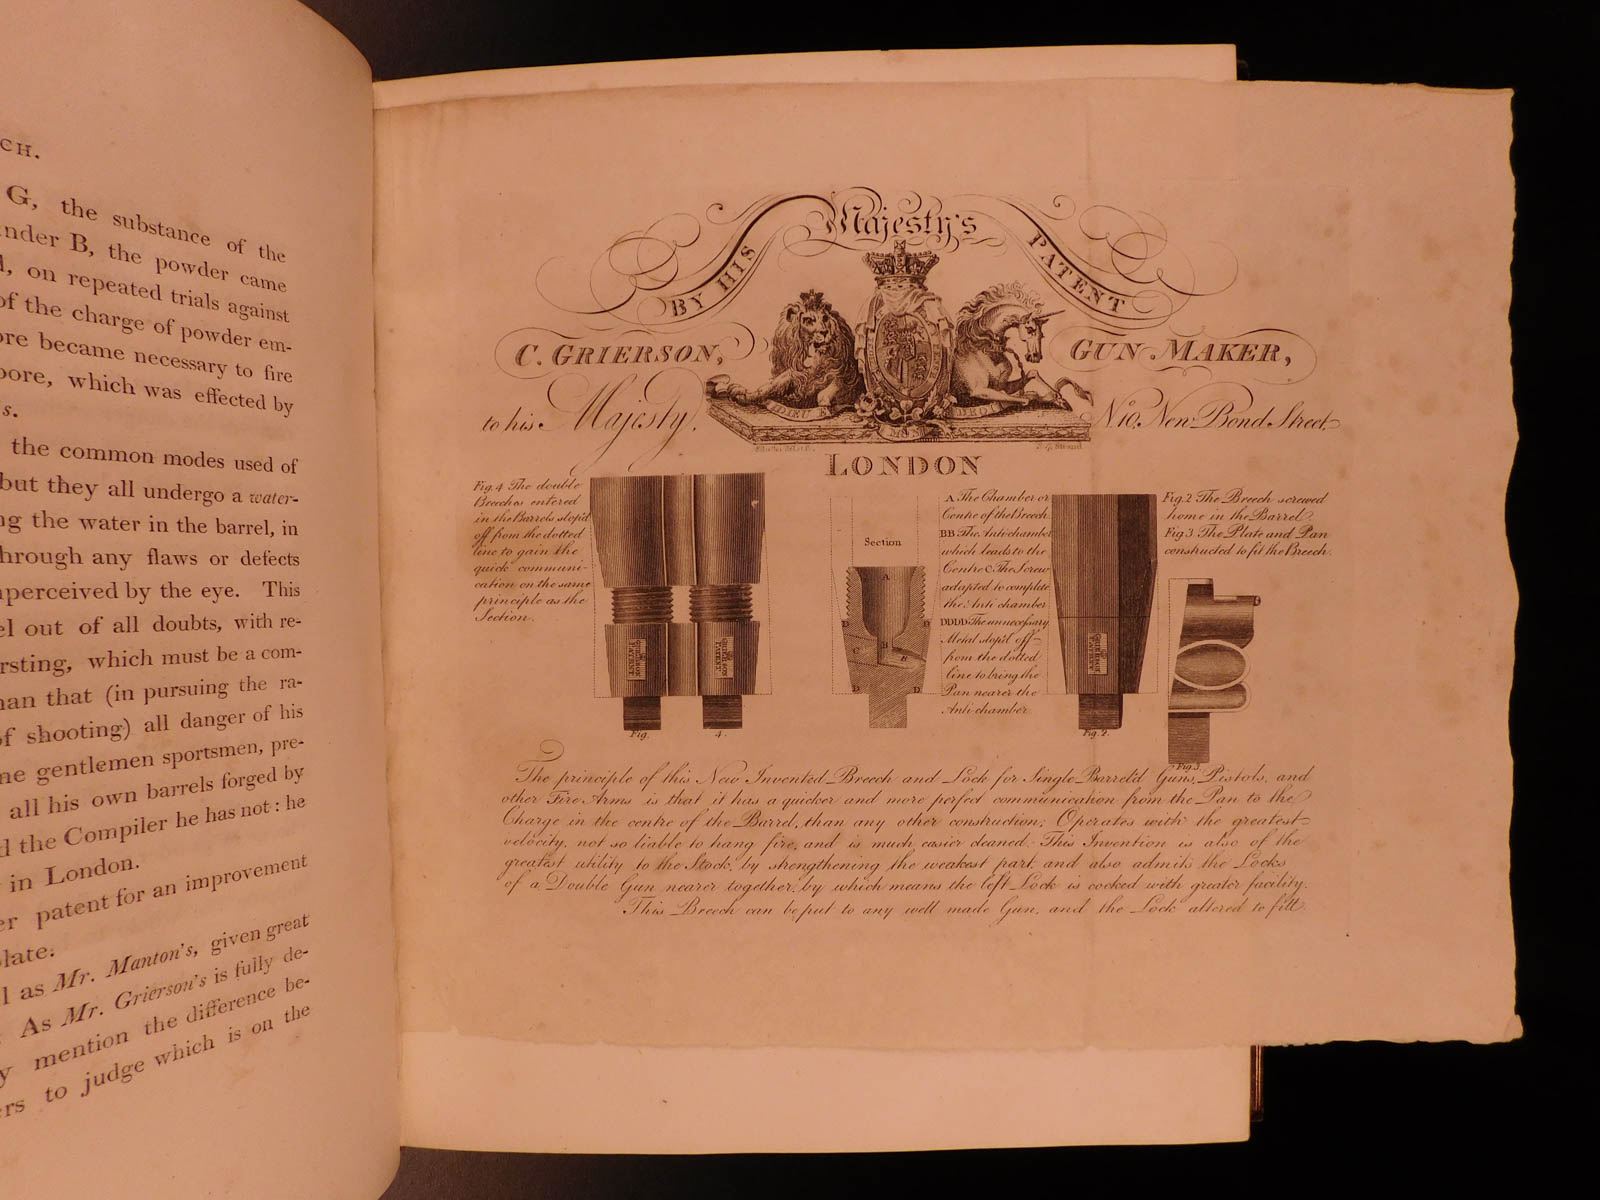 CH.
G, the substance of the
under B, the powder came
on repeated trials against
of the charge of powder em-
ore became necessary to fire
bore, which was effected by
s.
the common modes used of
but they all undergo a water-
ng the water in the barrel, in
through any flaws or defects
nperceived by the eye. This
el out of all doubts, with re-
rsting, which must be a com-
nan that (in pursuing the ra-
of shooting) all danger of his
ne gentlemen sportsmen, pre-
all his own barrels forged by
d the Compiler he has not: he
in London.
er patent for an improvement
plate.
l as Mr. Manton's, given great
As Mr. Grierson's is fully de-
y mention the difference be-
ers to judge which is on the
BY HIS Majesty's PATENT
C. GRIERSON, GUN MAKER,
to his Majesty, N.10, New Bond Street,
DIEU ET MON DROIT
LONDON
Fig. 4 The double
Breeches entered
in the Barrels slop'd
off from the dotted
line to gain the
quick communi-
cation on the same
principle as the
Section.
GRIERSON PATENT
GRIERSON PATENT
Fig. 4.
Section
A
D D
B
C B
D D
A The Chamber or
Centre of the Breech.
BB The Anti chamber
which leads to the
Centre C The Screw
adapted to complete
the Anti chamber
DDDD The unnecessary
Metal slop'd off
from the dotted
line to bring the
Pan nearer the
Anti chamber.
GRIERSON PATENT
Fig. 2.
Fig. 2 The Breech screwed
home in the Barrel.
Fig. 3 The Plate and Pan
constructed to fit the Breech.
Fig. 3.
The principle of this New Invented Breech and Lock for Single Barrel'd Guns, Pistols, and
other Fire Arms is that it has a quicker and more perfect communication from the Pan to the
Charge in the centre of the Barrel, than any other construction; Operates with the greatest
velocity, not so liable to hang fire, and is much easier cleaned. This Invention is also of the
greatest utility to the Stock, by strengthening the weakest part, and also admits the Locks
of a Double Gun nearer together, by which means the left Lock is cocked with greater facility.
This Breech can be put to any well made Gun, and the Lock altered to fitt.